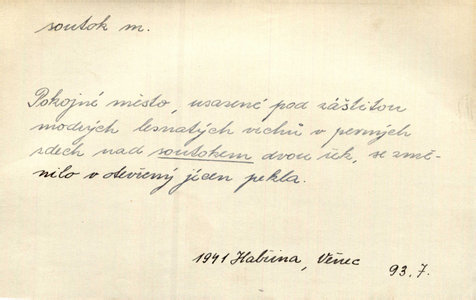 soutok m.
Pokojné město, usazené pod záštitou
modrých lesnatých vrchů v pevných
zdech nad soutokem dvou řek, se změ-
nilo v otevřený jícen pekla.
1941 Habřina, Věnec 93.7.